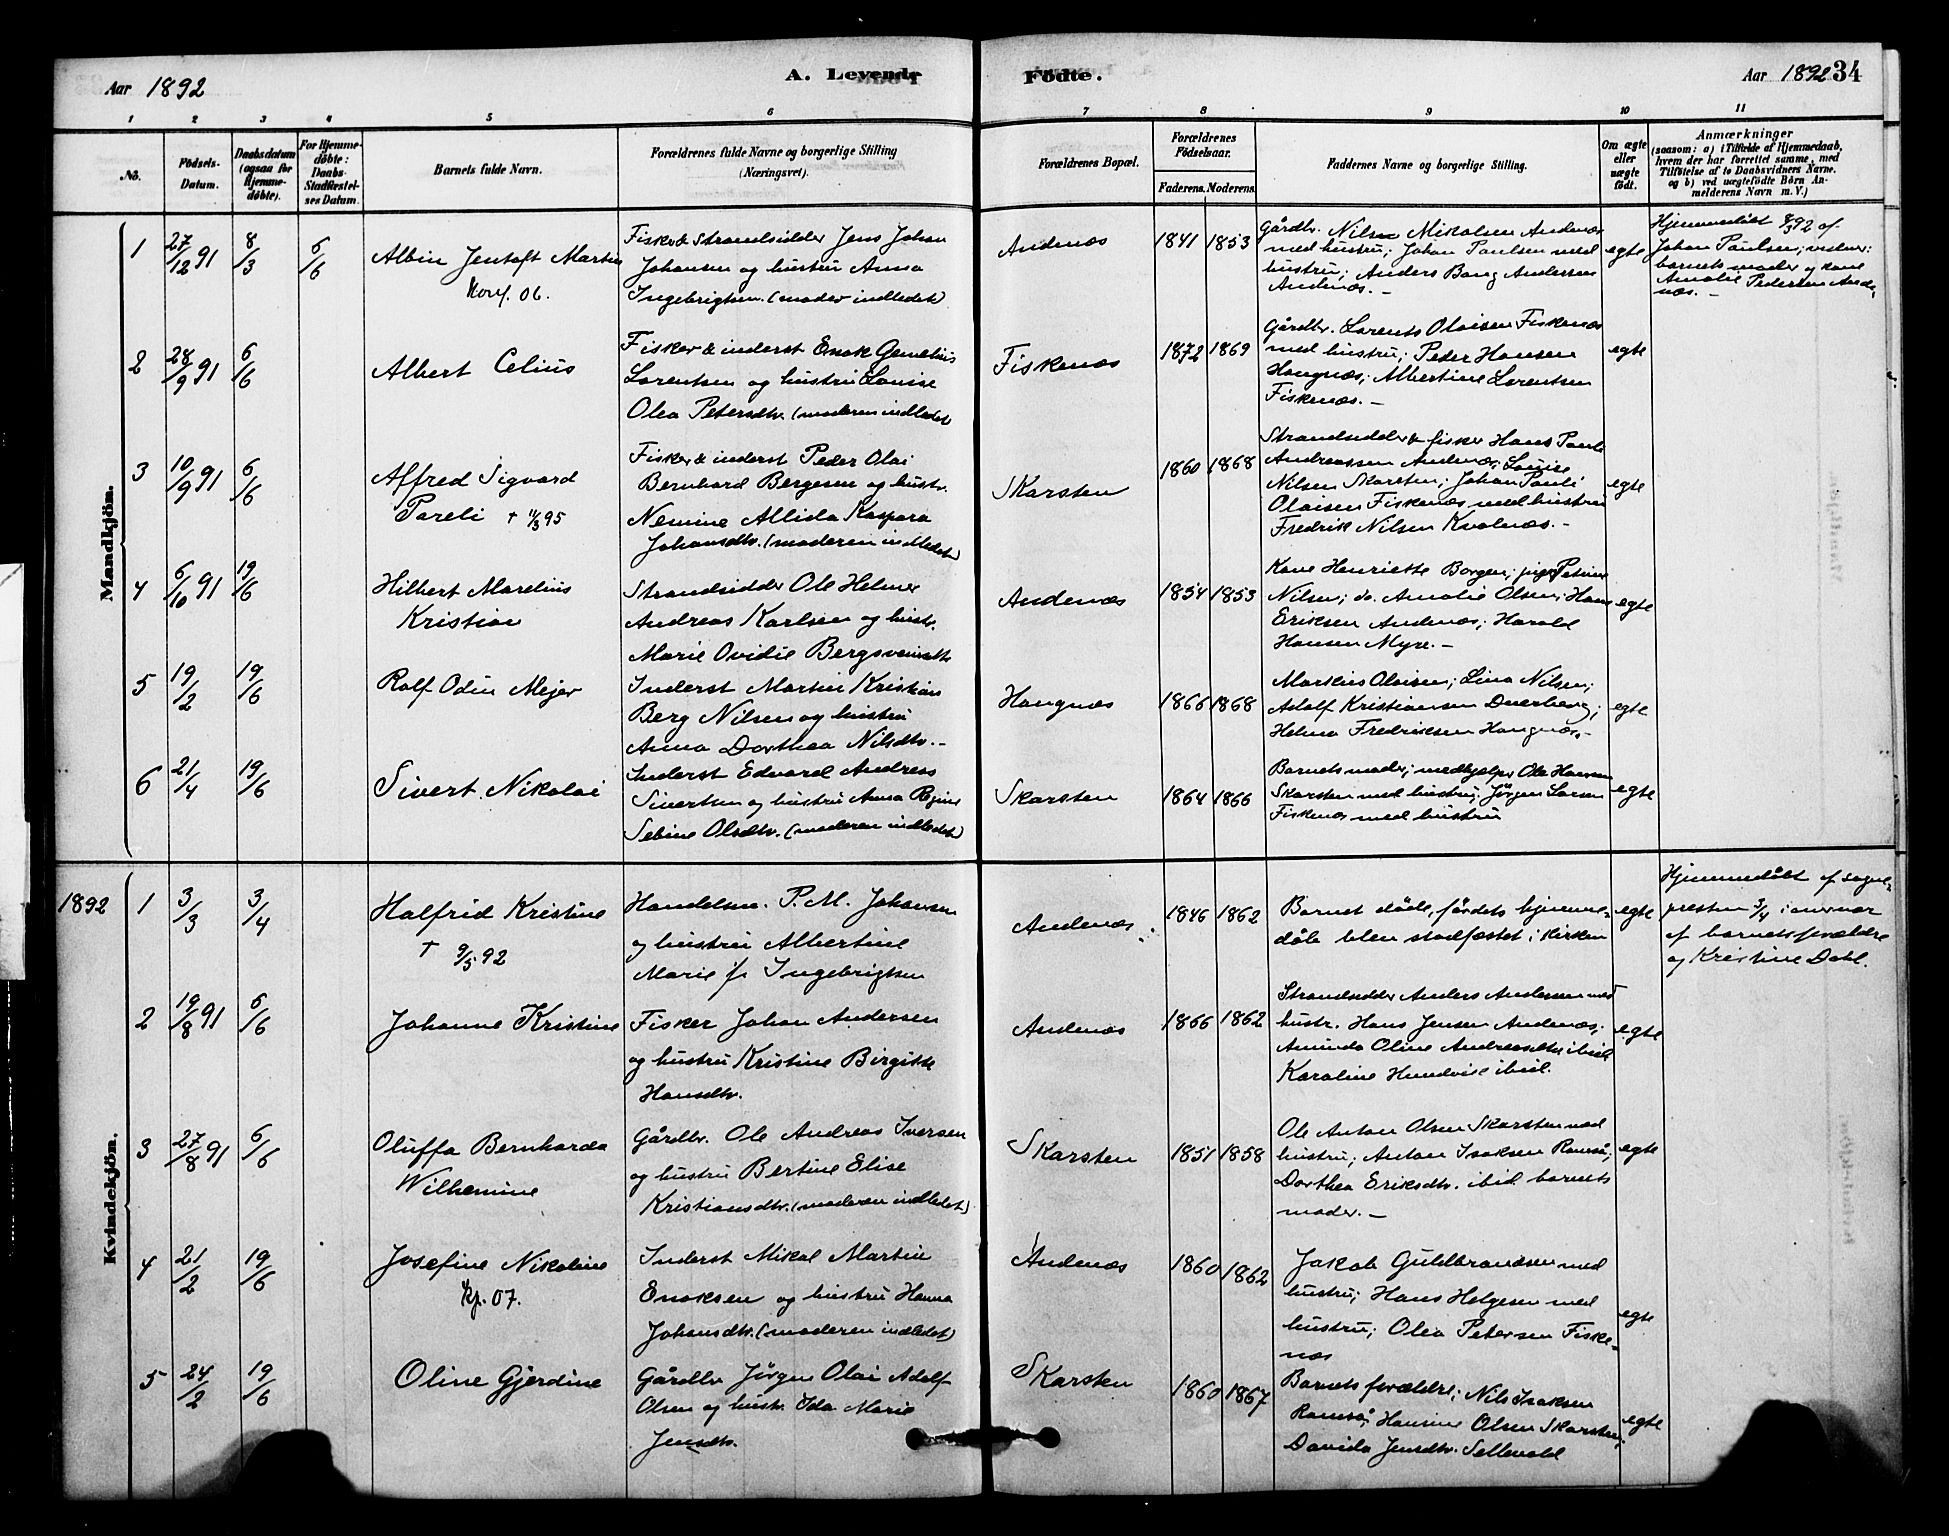 Aar 1892
A. Levende
Födte.
Aar 1892
34
1 2 3 4 5 6 7 8 9 10 11
No.
Födsels-
Datum.
Daabsdatum
(ogsaa for
Hjemme-
döbte).
For Hjemme-
döbte:
Daabs-
Stadfæstel-
ses Datum.
Barnets fulde Navn.
Forældrenes fulde Navne og borgerlige Stilling
(Næringsvei).
Forældrenes Bopæl.
Forældrenes
Födselsaar.
Faderens. Moderens.
Faddernes Navne og borgerlige Stilling.
Om ægte
eller
uægte
födt.
Anmærkninger
(saasom: a) i Tilfælde af Hjemmedaab,
hvem der har forrettet samme, med
Tilföielse af to Daabsvidners Navne.
og b) ved uægtefödte Börn An-
melderens Navn m. V.)
Mandkjön.
1
27/12 91
8/3
6/6
Albin Jentoft Martin
Konf. 06.
Fisker & Strandsidder Jens Johan
Johansen og hustru Anna
Ingebrigtsen. (moder indledet)
Andenæs
1841 1853
Gårdbr. Nils Mikalsen Andenæs
med hustru; Johan Paulsen med
hustru; Anders Bang Andersen
Andenæs. -
egte
Hjemmedøbt 8/3 92 af
Johan Paulsen; vidner:
barnets moder og kone
Amalie Pedersen Ande-
næs. -
2
28/9 91
6/6
Albert Celius
Fisker & inderst Enok Gemelius
Lorentsen og hustru Louise
Olea Petersdtr. (moderen indledet
Fiskenæs
1872 1869
Gårdbr. Lorents Olaisen Fiskenæs
med hustru; Peder Hansen
Haugnæs; Albertine Lorentsen
Fiskenæs. -
egte
3
10/9 91
6/6
Alfred Sigvard
Pareli † 11/3 95
Fisker & inderst Peder Olai
Bernhard Bergesen og hustr.
Nemine Allida Kaspara
Johansdtr. (moderen indledet)
Skarsten
1860 1868
Strandsidder & fisker Hans Pauli
Andreassen Andenæs; Louise
Nilsen Skarsten; Johan Pauli
Olaisen Fiskenæs med hustru
Fredrik Nilsen Kvalnæs. -
egte
4
6/10 91
19/6
Hilbert Marelius
Kristian
Strandsidder Ole Helmer
Andreas Karlsen og hustr.
Marie Ovidie Bergsvendtr.
Andenæs
1854 1853
Kone Henriette Borgen; pige Petrine
Nilsen; do. Amalie Olsen; Hans
Eriksen Andenæs; Harald
Hansen Myre. -
egte
5
19/2
19/6
Ralf Odin Mejer
Inderst Martin Kristian
Berg Nilsen og hustru
Anna Dorthea Nilsdtr. -
Haugnæs
1866 1868
Markus Olaisen; Lina Nilsen;
Adolf Kristiansen
Helma Fredriksen Haugnæs. -
egte
6
21/4
19/6
Sivert Nikolai
Inderst Edvard Andreas
Sivertsen og hustru Anna Regine
Sebine Olsdtr. (moderen indledet)
Skarsten
1864 1866
Barnets moder; medhjelper Ole Hansen
Skarsten med hustru; Jørgen Larsen
Fiskenæs med hustru
egte
Kvindekjön.
1892
1
3/3
3/4
Halfrid Kristine
† 9/5 92
Handelsm. P. M. Johansen
og hustru Albertine
Marie f. Ingebrigtsen
Andenæs
1846 1862
Barnet døde, før dets hjemme-
dåb blev stadfæstet i kirken
egte
Hjemmedøbt af sogne-
presten 3/4 i nærvær
af barnets forældre
og Kristine Dahl.
2
19/8 91
6/6
Johanne Kristine
Fisker Johan Andersen
og hustru Kristine Birgitte
Hansdtr.
Andenæs
1866 1862
Strandsidder Anders Andersen med
hustr. Hans Jensen Andenæs;
Aminda Oline Andreasdtr. ibid
Karoline Hundvik ibid.
egte
3
27/8 91
6/6
Oluffa Bernharda
Wilhemine
Gårdbr. Ole Andreas Iversen
og hustru Bertine Elise
Kristiansdtr. (moderen indledet)
Skarsten
1851 1858
Ole Anton Olsen Skarsten med
hustru; Anton Isaksen Ramså;
Dorthea Eriksdtr. ibid. barnets
moder. -
egte
4
21/2
19/6
Josefine Nikoline
kf. 07.
Inderst Mikal Martin
Enoksen og hustru Hanna
Johansdtr. (moderen indledet)
Andenæs
1860 1862
Jakob Guldbrandsen med
hustru; Hans Helgesen med
hustru; Olea Petersen Fiske-
næs
egte
5
24/2
19/6
Oline Gjerdine
Gårdbr. Jørgen Olai Adolf
Olsen og hustr. Ida Marie
Jensdtr.
Skarsten
1860 1867
Barnets forældre; Nils Isaksen
Ramså; Hansine Olsen Skarsten;
Davida Jensdtr. Sellevold
egte